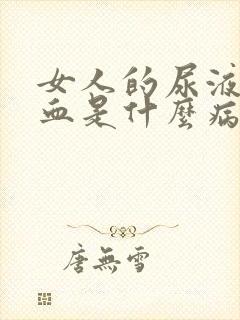 女人的尿液
血是什麼病
唐無雪